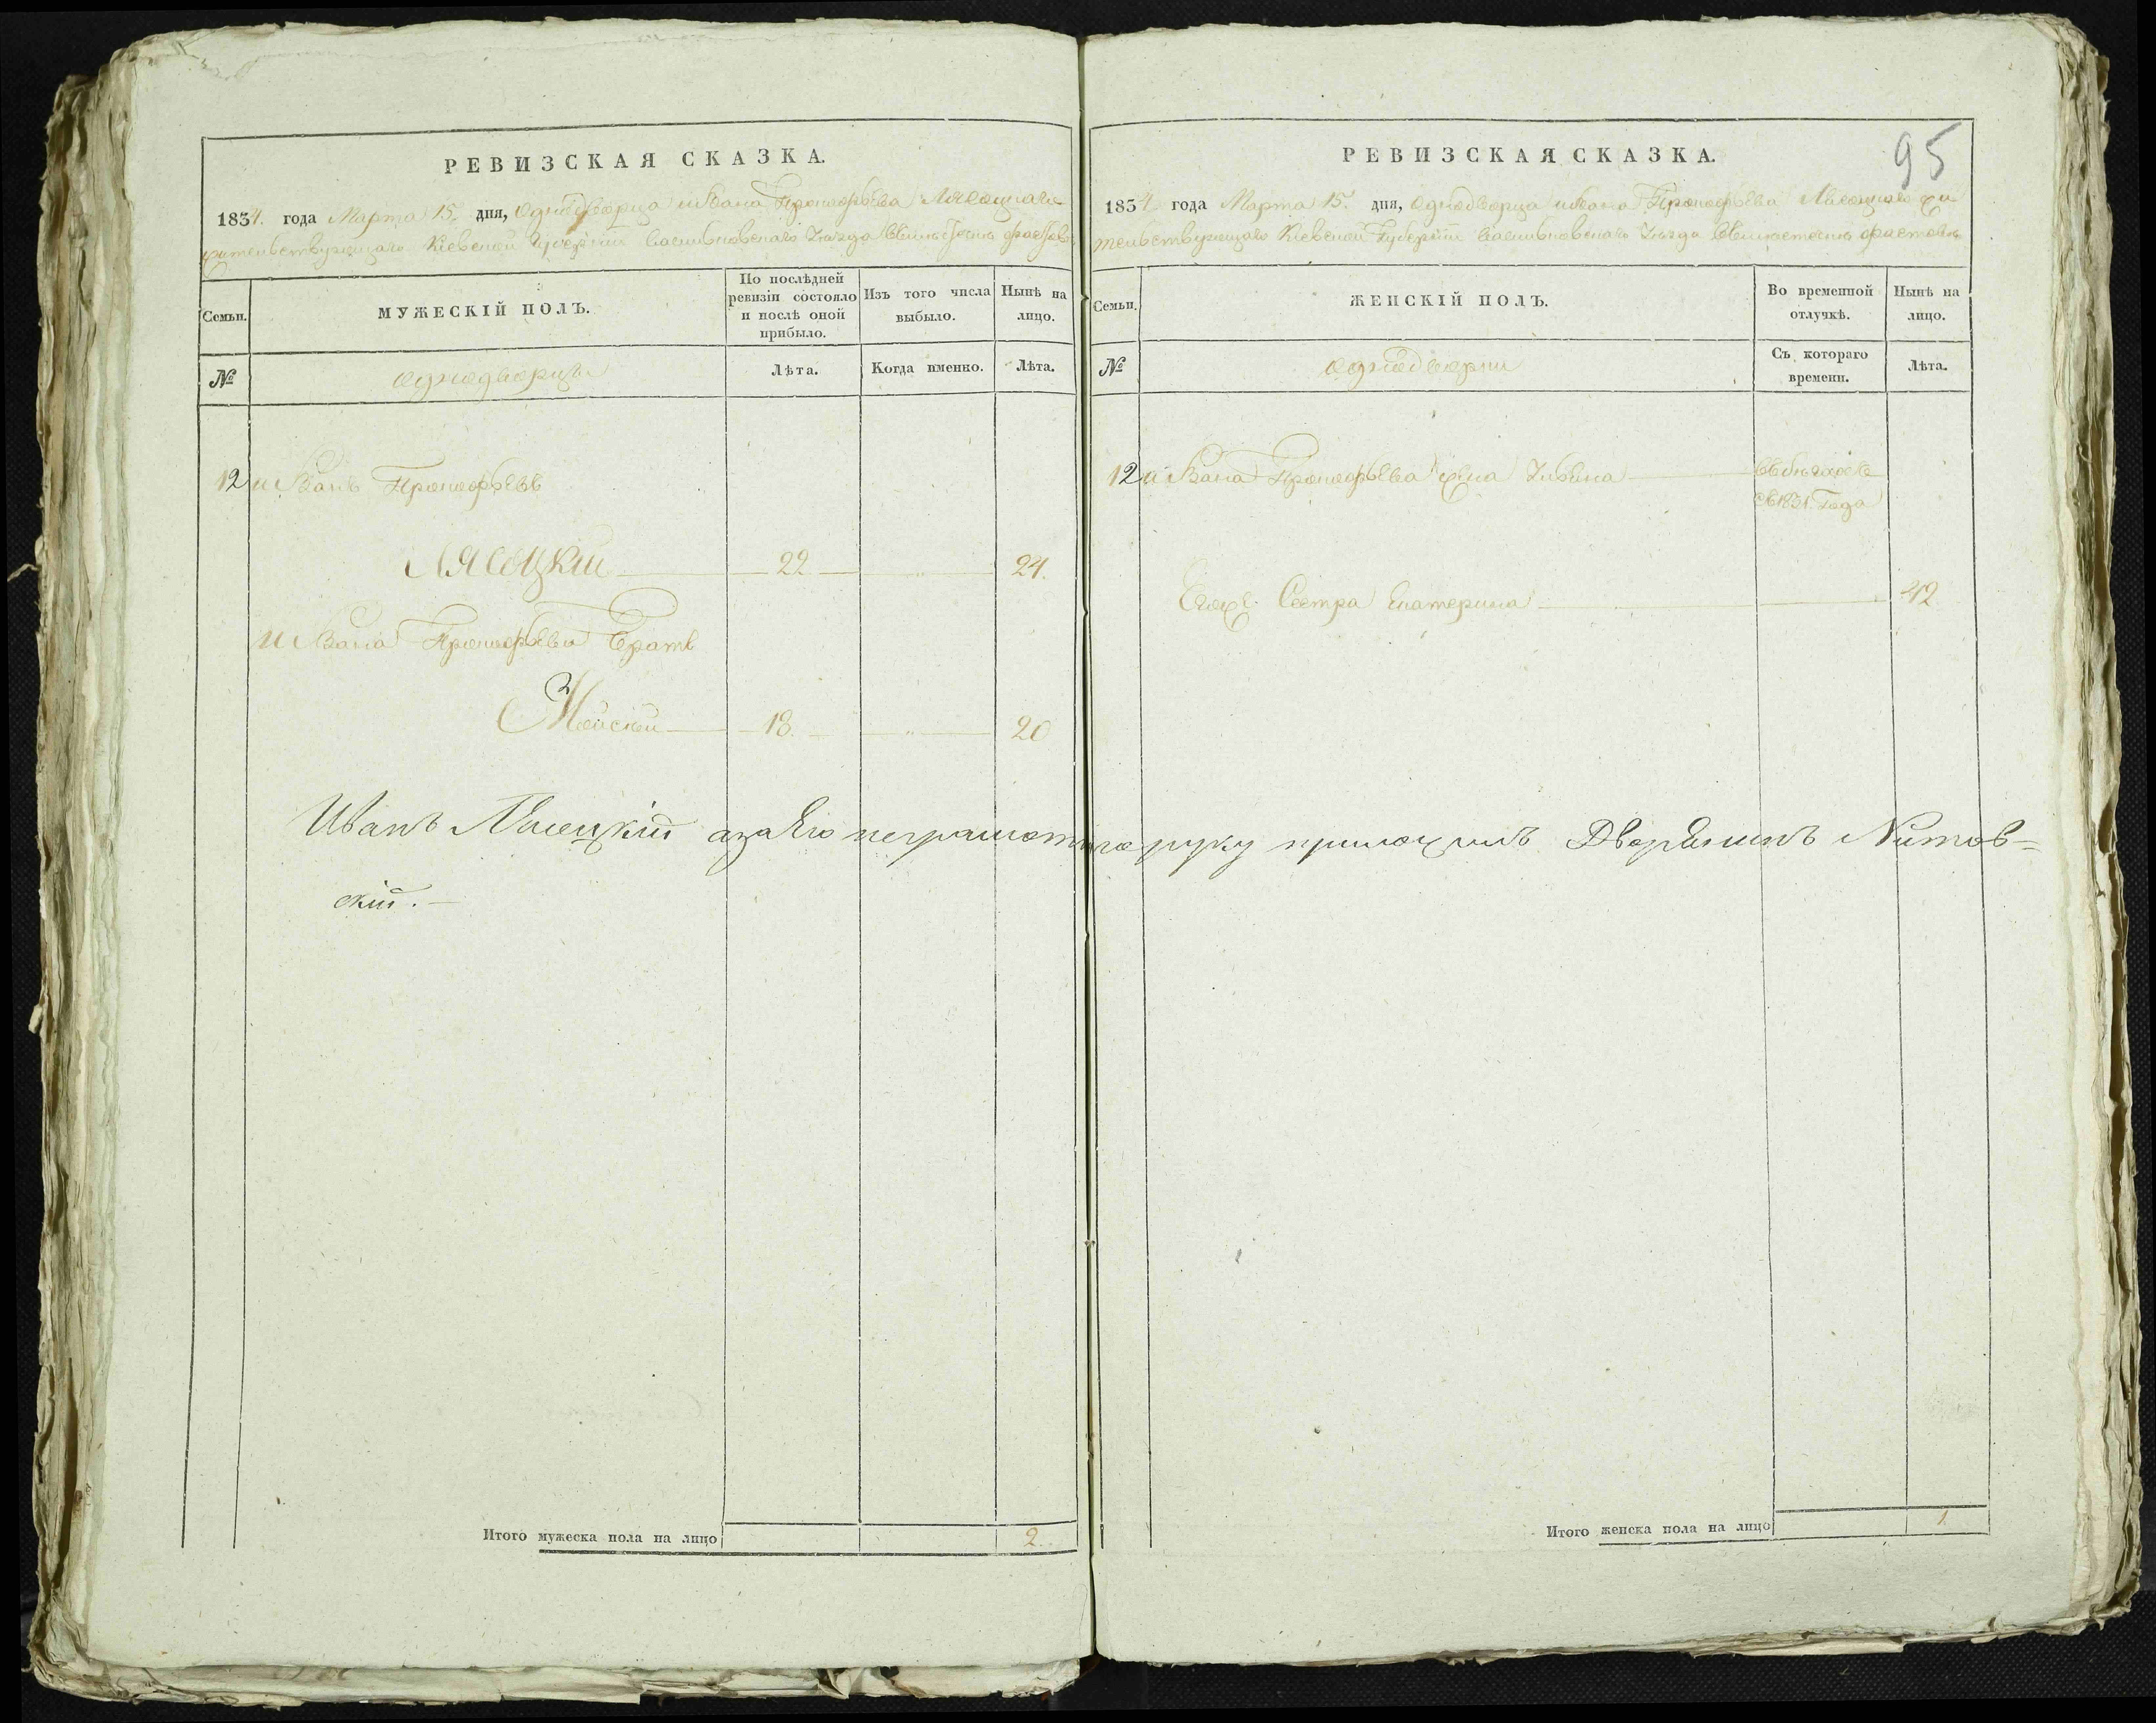 РЕВИЗСКАЯ СКАЗКА.
1834. года Марта 15. дня, однодворца ивана Прокофьева Лясоцкаго
жительствующаго Кіевской Губерніи Васильковскаго уезда вместечке фастове
Семьи. МУЖЕСКІЙ ПОЛЪ. По послѣдней ревизіи состояло и послѣ оной прибыло. Изъ того числа выбыло. Нынѣ на лицо.
№ однодворцы Лѣта. Когда именно. Лѣта.
12 иванъ Прокофьевъ
Лясоцкій 22 24.
ивана Прокофьева братъ
Мойсей 18. 20
Иванъ Лясецкій а за Его неграмотнаго руку приложилъ Дворянинъ Литов=
скій.
Итого мужеска пола на лицо 2.
95
РЕВИЗСКАЯ СКАЗКА.
1834 года Марта 15. дня, однодворца ивана Прокофьева Лясоцкаго жи
тельствующаго Кіевской Губерніи Васильковскаго уезда вместечке фастове
Семьи. ЖЕНСКІЙ ПОЛЪ. Во временной отлучкѣ. Нынѣ на лицо.
№ однодворки Съ котораго времени. Лѣта.
12 ивана Прокофьева жена
съ 1831 Года
Егоже Сестра Екатерина 42
Итого женска пола на лицо 1